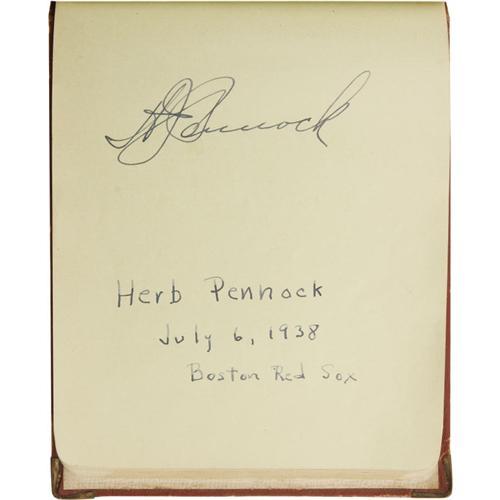 H J Pennock
Herb Pennock
July 6, 1938
Boston Red Sox